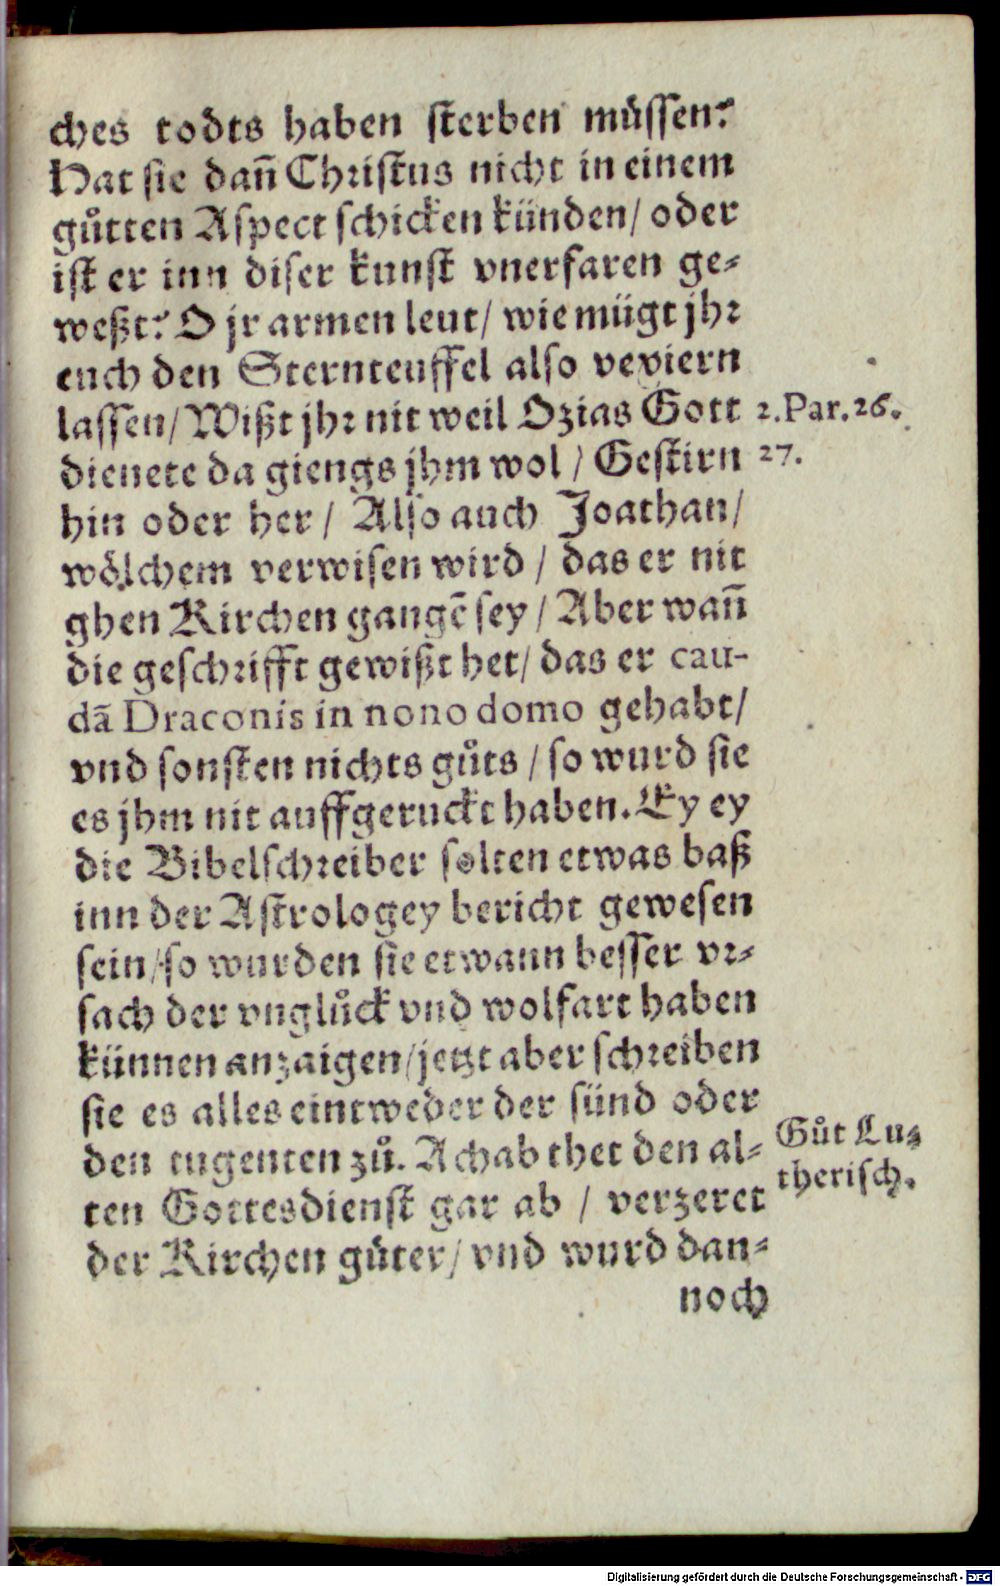 ches todts haben sterben müssen?
Hat sie dañ Christus nicht in einem
gůtten Aspect schicken künden/ oder
ist er inn diser kunst vnerfaren ge⸗
weßt? O jr armen leut/ wie mügt jhr
euch den Sternteuffel also vexiern
lassen/ Wißt jhr nit weil Ozias Gott
2. Par. 26.
dienete da giengs jhm wol / Gestirn
27.
hin oder her / Also auch Joathan/
wölchem verwisen wird / das er nit
ghen Kirchen gangẽ sey / Aber wañ
die geschrifft gewißt het/ das er cau-
dã Draconis in nono domo gehabt/
vnd sonsten nichts gůts / so wurd sie
es jhm nit auffgeruckt haben. Ey ey
die Bibelschreiber solten etwas baß
inn der Astrologey bericht gewesen
sein/ so wurden sie etwann besser vr⸗
sach der vnglůck vnd wolfart haben
künnen anzaigen/ jetzt aber schreiben
sie es alles eintweder der sünd oder
den tugenten zů. Achab thet den al⸗
Gůt Lu⸗
therisch.
ten Gottesdienst gar ab / verzeret
der Kirchen gůter/ vnd wurd dan⸗
noch
Digitalisierung gefördert durch die Deutsche Forschungsgemeinschaft - DFG